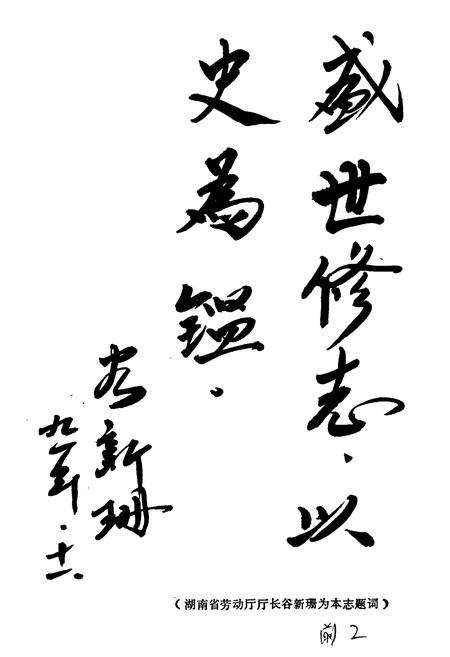 盛世修志、以
史為鑑。
谷新珊
九一年.十一
（湖南省劳动厅厅长谷新珊为本志题词）
前2